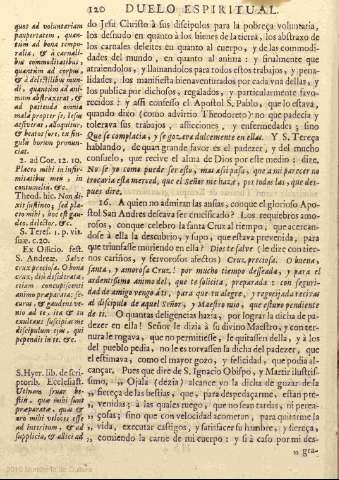 120 DUELO ESPIRITUAL.
do Jesu Christo à sus discipulos para la pobreza voluntaria,
los desnudo en quanto à los bienes de la tierra, los abstraxo de
los carnales deleites en quanto al cuerpo, y de las commodi-
dades del mundo, en quanto al anima: y finalmente que
atraiendolos, y llamandolos para todos estos trabajos, y pena-
lidades, los manifiesta bienaventurados por cada vna dellas, y
los publica por dichosos, regalados, y particularmente favo-
recidos: y assi confesso el Apostol S. Pablo, que lo estava,
quando dixo (como advirtio Theodoreto) no que padecia y
tolerava sus trabajos, aflicciones, y enfermedades; sino
Que se complacia, y se gozava dulcemente en ellas. Y S. Teresa
hablando, de quan grande favor es el padezer, y del mucho
consuelo, que recive el alma de Dios por este medio: dize.
No se yo como puede ser esto, mas assi passa, que a mi parecer no
trocaria esta merced, que el Señor me haze, por todas las, que des-
pues dire.
16. A quien no admiran las ansias, conque el glorioso Apo-
stol San Andres deseava ser crucificado? Los requiebros amo-
rosos, conque celebro la santa Cruz al tiempo, que acercan-
dose à ella la descubrio, y supo, que estava prevenida, para
que triunfasse muriendo en ella? Dios te salve (le dize con tier-
nos cariños, y fervorosos afectos) Cruz preciosa. O buena,
santa, y amorosa Cruz! por mucho tiempo desseada, y para el
ardentissimo animo del, que te solicita, preparada: con seguri-
dad de amigo vengo à ti, para que tu alegre, y regocijada recivas
al discipulo de aquel Señor, y Maestro mio, que estuvo pendiente
de ti. O quantas deligencias hazia, por lograr la dicha de pa-
dezer en ella! Señor le dizia à su divino Maestro, y con ter-
nura le rogava, que no permitiesse, le quitassen della, y à los
del pueblo pedia, no le estorvassen la dicha del padezer, que
el estimava, como el mayor gozo, y felicidad, que podia al-
cançar. Pues que dire de S. Ignacio Obispo, y Martir ilustris-
simo, „ Ojala (dezia) alcanze yo la dicha de gozar de la
„ fiereça de las bestias, que, para despedaçarme, estan pre-
„ venidas; à las quales ruego, que no sean tardas, ni pere-
„ çosas; sino que con velocidad acometan, para quitarme la
„ vida, executar castigos, y satisfacer su hambre, y fiereça,
„ comiendo la carne de mi cuerpo: y si à caso por mi des-
„ gra-
quos ad voluntariam
paupertatem, quan-
tum ad bona tempo-
ralia, & à carnali-
bus commoditatibus,
quantum ad corpus,
& à delectabilibus mun-
di, quantum ad ani-
mum abstraxerat, &
ad patienda omnia
mala propter se, Iesus
asciverat, alloquitur,
& beatos fore, in sin-
gulis horum pronun-
ciat.
2. ad Cor. 12. 10.
Placeo mihi in infir-
mitatibus meis, in
contumelijs. &c.
Theod. hic. Non di-
xit sustineo, sed pla-
ceo mihi, hoc est gau-
deo, delector. &c.
S. Teres. 1. p. vis
suæ. c. 20.
Ex Officio. fest.
S. Andreæ. Salve
crux pretiosa. O bona
crux, diu desiderata,
etiam concupiscenti
animo præparata; se-
curus & gaudens ve-
nio ad te, ita & tu
exultans suscipias me
discipulum ejus, qui
pependit in te. &c.
S. Hyer. lib. de scri-
ptorib. Ecclesiast.
Utinam fruar be-
stijs, quæ mihi sunt
præparatæ, quas &
oro mihi veloces esse
ad interitum, & ad
supplicia, & allici ad